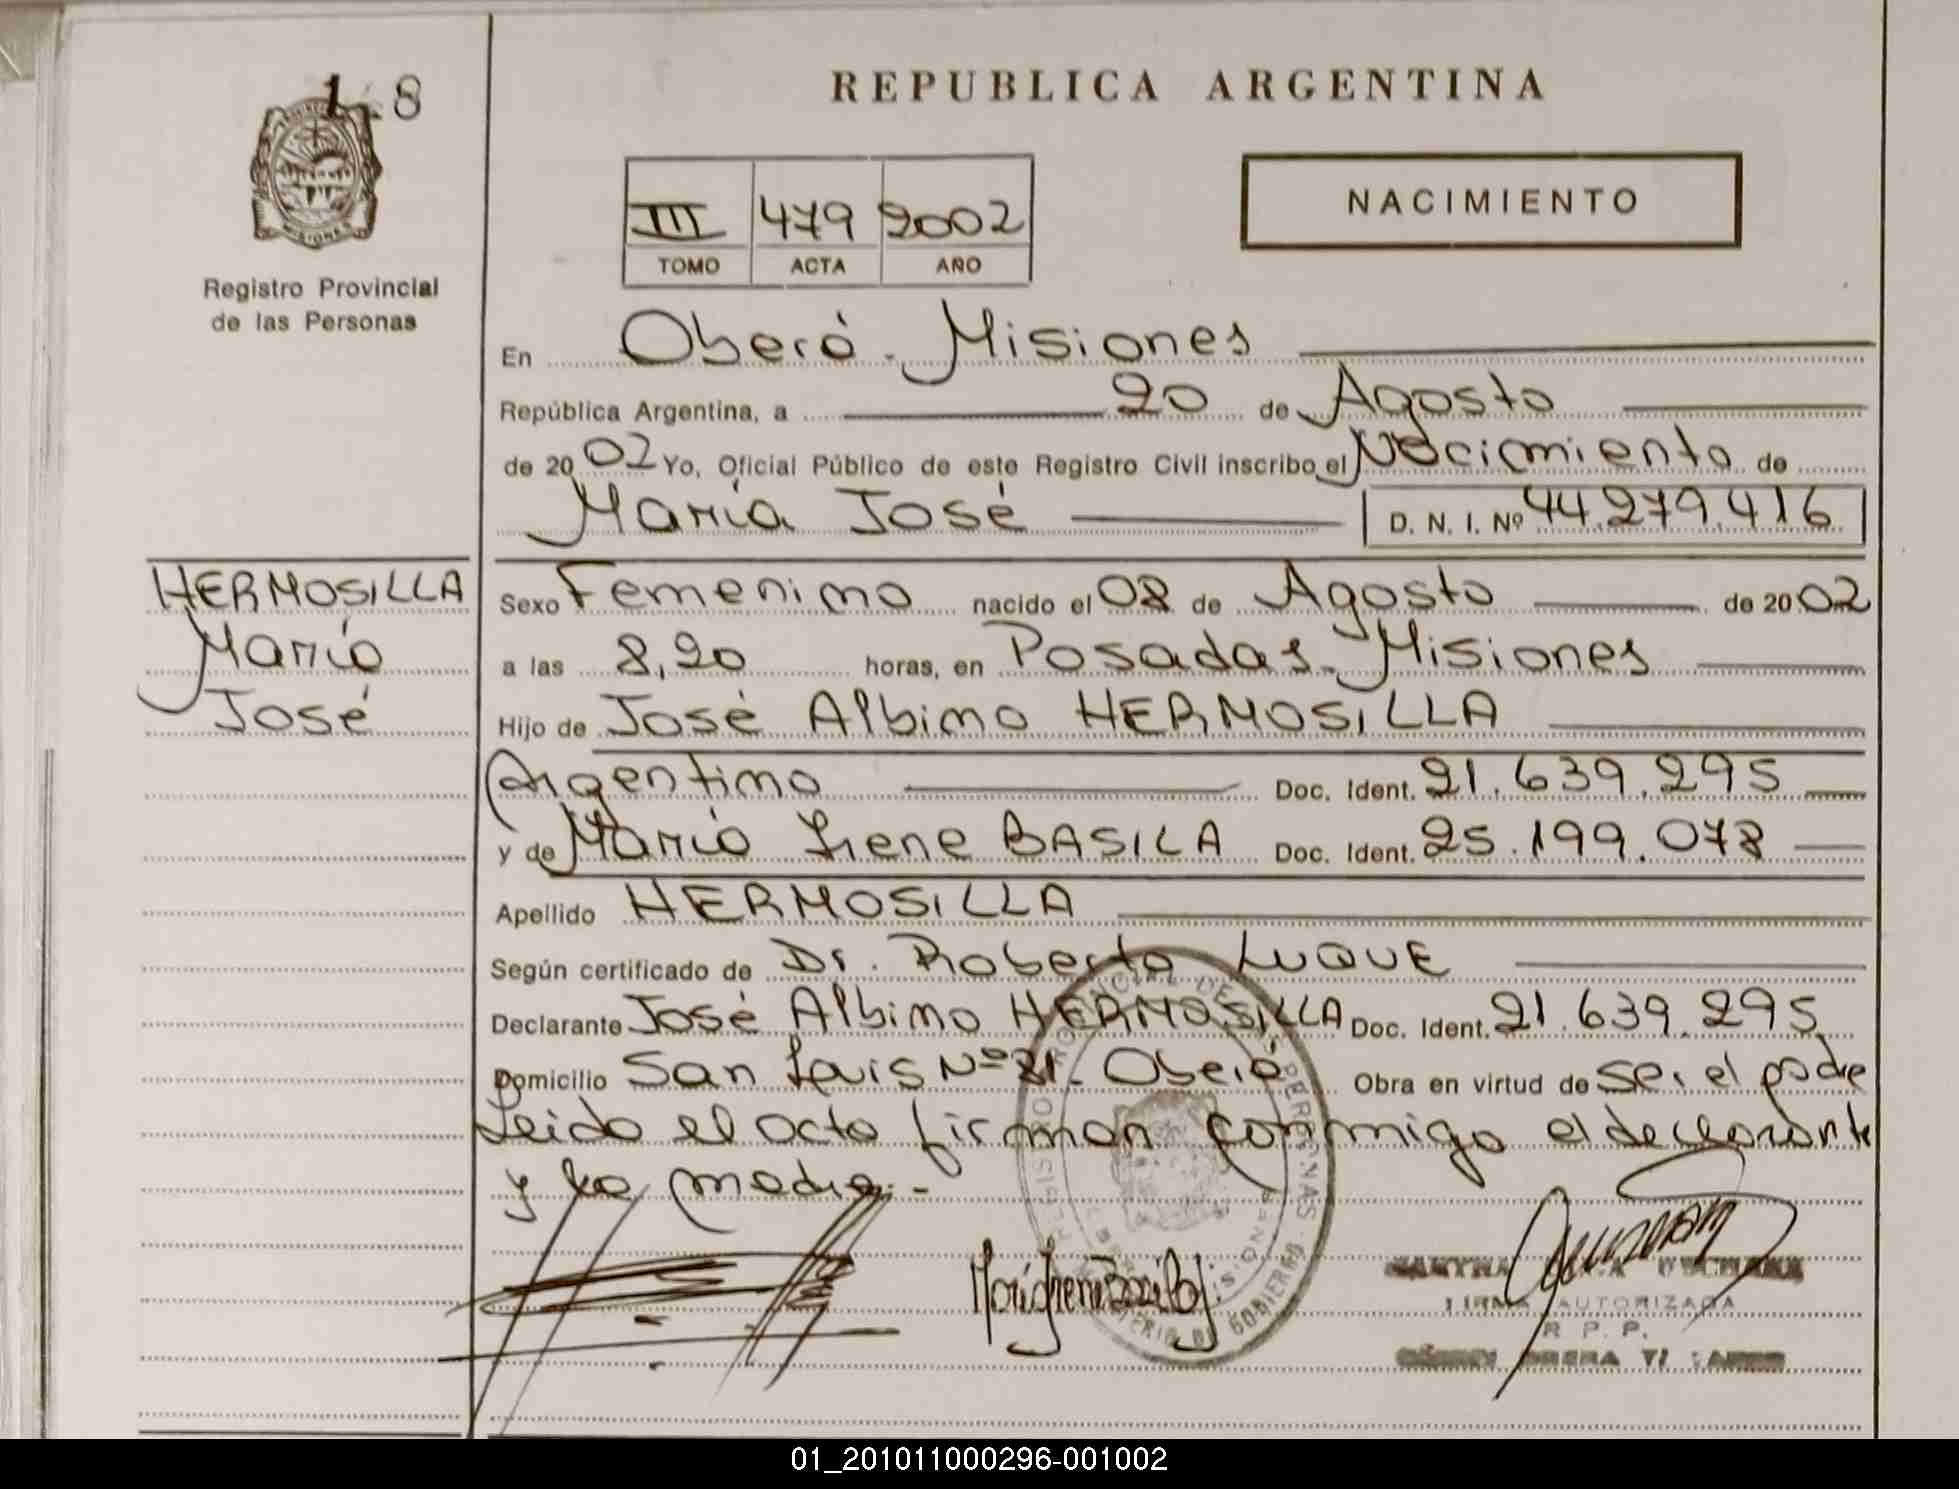 1 8
REPUBLICA ARGENTINA
NACIMIENTO
III 479 2002
TOMO ACTA AÑO
MISIONES
Registro Provincial
de las Personas
En Oberá - Misiones
República Argentina, a 20 de Agosto
de 2002 Yo, Oficial Público de este Registro Civil inscribo el Nacimiento de
María José D. N. I. Nº 44.279.416
HERMOSILLA
María
José
Sexo Femenino nacido el 08 de Agosto de 2002
a las 8,20 horas, en Posadas - Misiones
Hijo de José Albino HERMOSILLA
Argentino Doc. Ident. 21.639.295
y de María Irene BASILA Doc. Ident. 25.199.078
Apellido HERMOSILLA
Según certificado de Dr. Roberto LUQUE
Declarante José Albino HERMOSILLA Doc. Ident. 21.639.295
Domicilio San Luis Nº 81 - Oberá Obra en virtud de ser el padre
Leido el acta firman conmigo el declarante
y la madre.-
FIRMA AUTORIZADA
R. P. P.
01_201011000296-001002